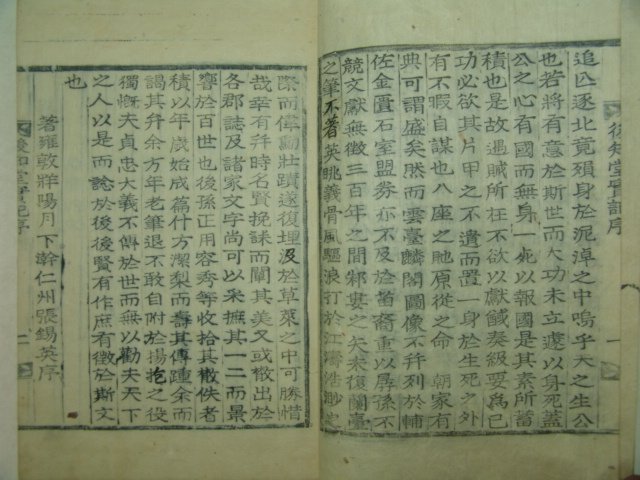 追亡逐北竟殞身於泥淖之中嗚乎天之生公
也若將有意於斯世而大功未立遽以身死蓋
公之心有國而無身一死以報國是其素所蓄
積也是故遇賊所在不欲以獻馘奏級要爲己
功必欲其片甲之不遺而置一身於生死之外
有不暇自謀也八座之貤原從之命朝家有
典可謂盛矣然而雲臺麟閣圖像不幷列於輔
佐金匱石室盟券亦不及於苗裔重以孱孫不
競文獻無徵三百年之間邾婁之矢未復蘭臺
之筆不著英眺義骨風驅浪打於江濤浩渺之
際而偉勳壯蹟遂復埋沒於草萊之中可勝惜
哉幸有幷時名賢挽誄而闡其美又或散出於
各郡誌及諸家文字尚可以采摭其一二而景
響於百世也後孫正用容秀等收拾其散佚者
積以年歲始成篇什方潔梨而壽其傳踵余而
謁其弁余方年老筆退不敢自附於揚抱之役
獨慨夫貞忠大義不傳於世而無以勸夫天下
之人以是而諗於後後賢有作庶有徵於斯文
也
著雍敦牂陽月下澣仁州張錫英序
後知堂實記序
一
後知堂實記序
二